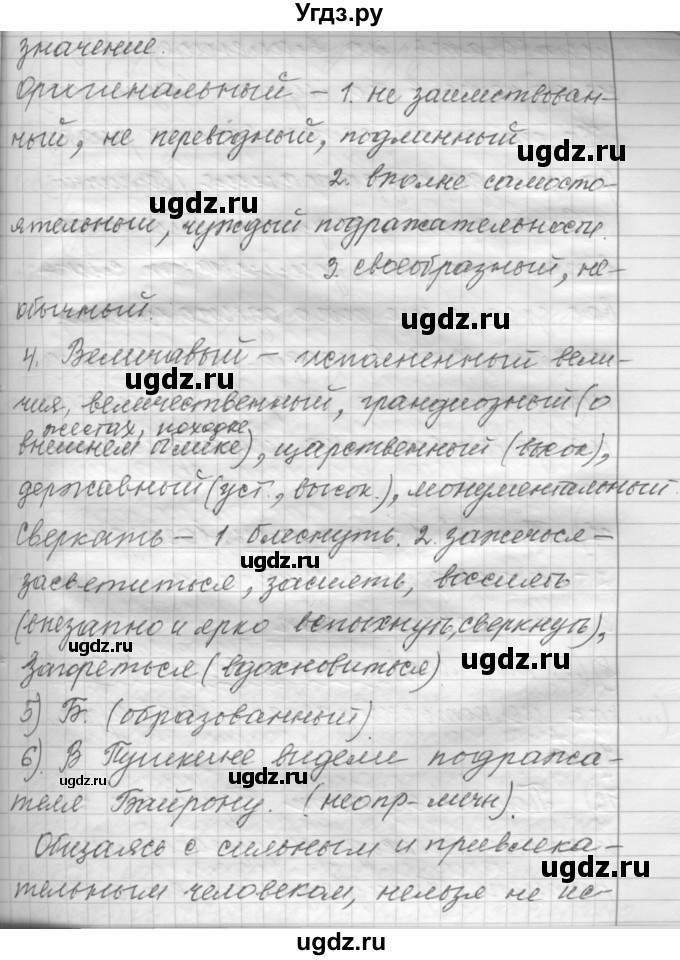 Угдз.ру
значение.
Оригинальный – 1. не заимствован-
ный, не переводный, подлинный
ugdz.ru
2. вполне самосто-
ugdz.ru
ятельный, чуждый подражательности.
ugdz.ru
3. своеобразный, не-
обычный.
ugdz.ru
4. Величавый – исполненный вели-
ugdz.ru
чия, величественный, грандиозный (о
жестах, походке
внешнем облике), царственный (высок),
ugdz.ru
державный (уст., высок.), монументальный.
Сверкать – 1. блеснуть. 2. зажечься –
ugdz.ru
засветиться, засиять, воссиять
(внезапно и ярко вспыхнуть, сверкнуть),
ugdz.ru
Загореться (вдохновиться)
5) Б. (образованный).
ugdz.ru
6). В Пушкине видели подража-
ugdz.ru
ugdz.ru
теля Байрону. (неопр-личн).
Общаясь с сильным и привлека-
ugdz.ru
тельным человеком, нельзя не ис-
ugdz.ru